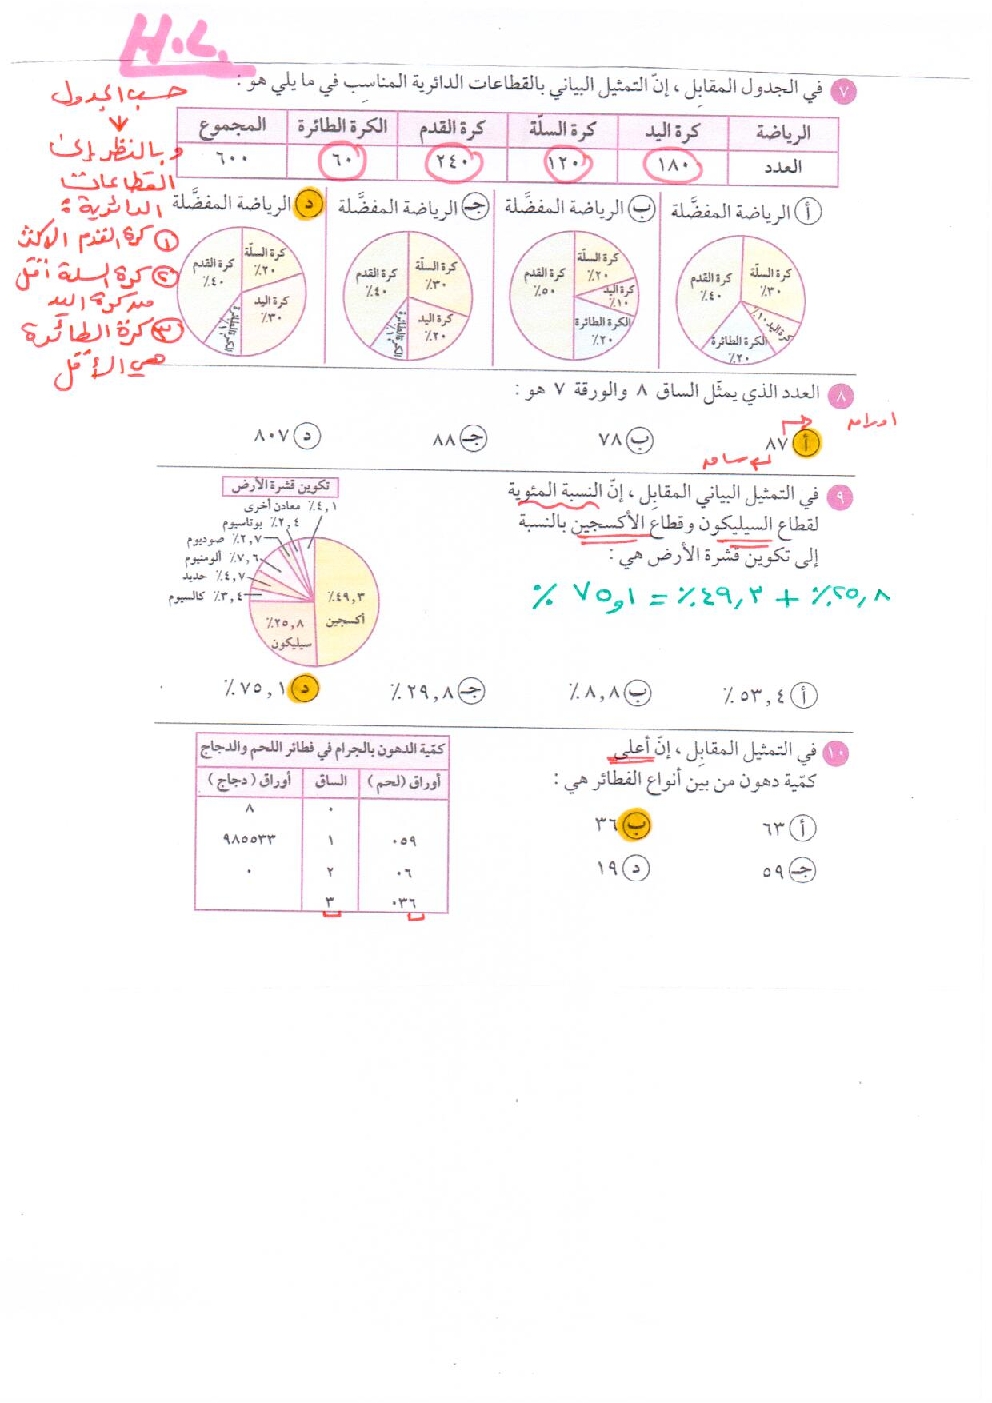 H.L.
٧ في الجدول المقابِل ، إنّ التمثيل البياني بالقطاعات الدائرية المناسِب في ما يلي هو :
حسب الجدول
وبالنظر إلى
القطاعات
الدائرية :
① كرة القدم الاكثر
② كرة السلة أقل
من كرة اليد
③ كرة الطائرة
هي الأقل
الرياضة كرة اليد كرة السلّة كرة القدم الكرة الطائرة المجموع
العدد ١٨٠ ١٢٠ ٢٤٠ ٦٠ ٦٠٠
أ الرياضة المفضَّلة
كرة السلّة
٣٠٪
كرة القدم
٤٠٪
كرة اليد ١٠٪
الكرة الطائرة
٢٠٪
ب الرياضة المفضَّلة
كرة السلّة
٢٠٪
كرة القدم
٥٠٪
كرة اليد
١٠٪
الكرة الطائرة
٢٠٪
جـ الرياضة المفضَّلة
كرة السلّة
٣٠٪
كرة القدم
٤٠٪
كرة اليد
٢٠٪
الكرة الطائرة
١٠٪
د الرياضة المفضَّلة
كرة السلّة
٢٠٪
كرة القدم
٤٠٪
كرة اليد
٣٠٪
الكرة الطائرة
١٠٪
٨ العدد الذي يمثّل الساق ٨ والورقة ٧ هو :
أ ٨٧ ب ٧٨ جـ ٨٨ د ٨٠٧
اوراق
ساق
٩ في التمثيل البياني المقابِل ، إنّ النسبة المئوية
لقطاع السيليكون وقطاع الأكسجين بالنسبة
إلى تكوين قشرة الأرض هي :
تكوين قشرة الأرض
٤,١٪ معادن أخرى
٢,٤٪ بوتاسيوم
٢,٧٪ صوديوم
٧,٦٪ ألومنيوم
٤,٧٪ حديد
٣,٤٪ كالسيوم
٤٩,٣٪
أكسجين
٢٥,٨٪
سيليكون
٢٥,٨٪ + ٤٩,٣٪ = ٧٥,١ ٪
أ ٥٣,٤٪ ب ٨,٨٪ جـ ٢٩,٨٪ د ٧٥,١٪
١٠ في التمثيل المقابِل ، إنّ أعلى
كمّية دهون من بين أنواع الفطائر هي :
أ ٦٣ ب ٣٦
جـ ٥٩ د ١٩
كمّية الدهون بالجرام في فطائر اللحم والدجاج
أوراق (لحم) الساق أوراق (دجاج)
٠ ٨
٠٥٩ ١ ٩٨٥٥٣٣
٠٦ ٢ ٠
٠٣٦ ٣